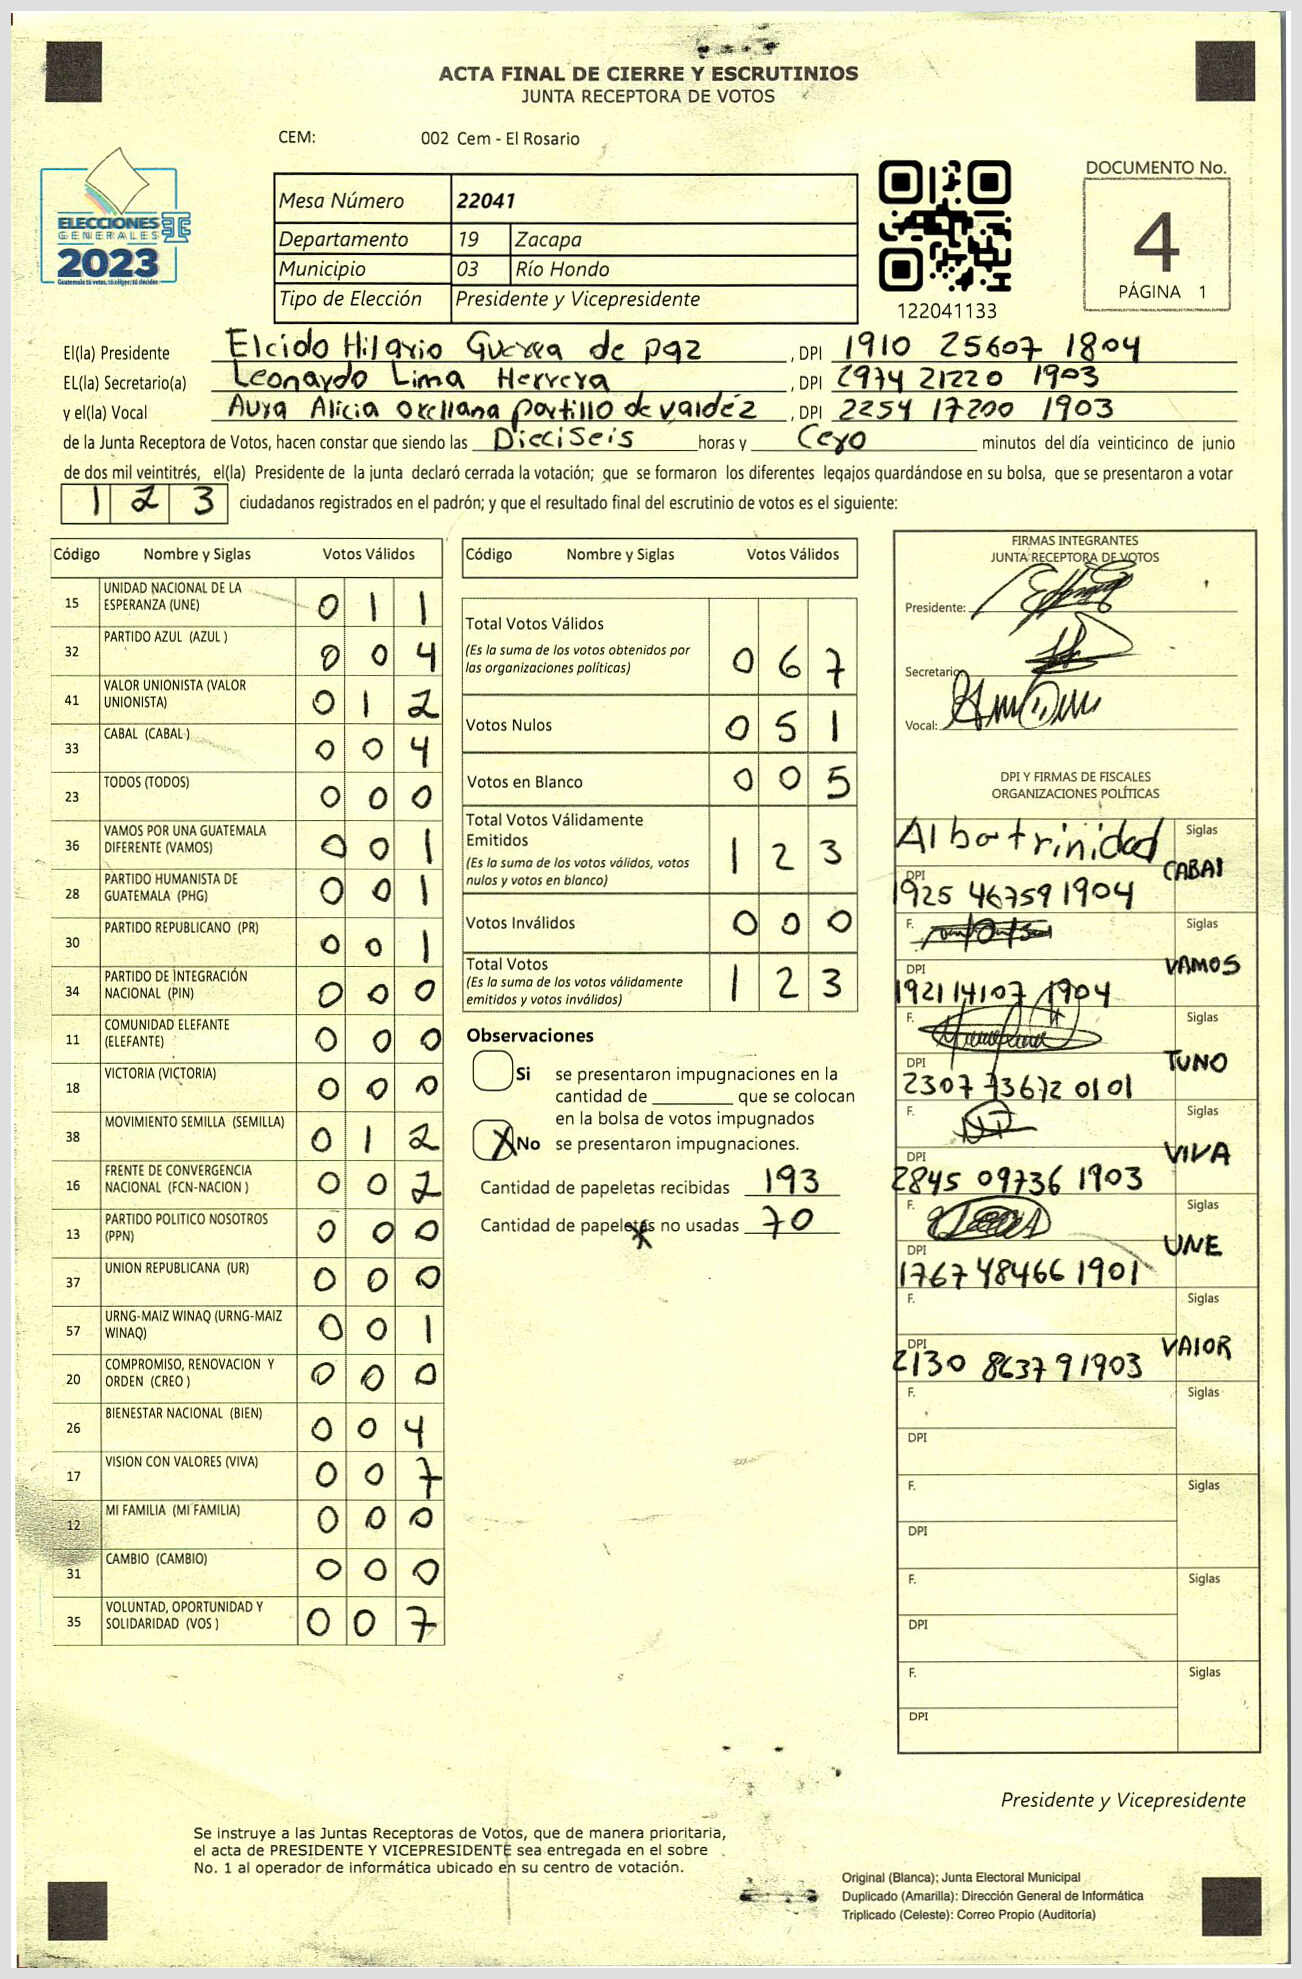 ACTA FINAL DE CIERRE Y ESCRUTINIOS
JUNTA RECEPTORA DE VOTOS
CEM: 002 Cem - El Rosario
ELECCIONES
GENERALES
2023
Guatemala tú votas, tú eliges, tú decides
Mesa Número 22041
Departamento 19 Zacapa
Municipio 03 Río Hondo
Tipo de Elección Presidente y Vicepresidente
122041133
DOCUMENTO No.
4
PÁGINA 1
El(la) Presidente Elcido Hilario Guerra de paz, DPI 1910 25607 1804
EL(la) Secretario(a) Leonardo Lima Herrera, DPI 2974 21220 1903
y el(la) Vocal Aura Alicia orellana portillo de valdéz, DPI 2254 17200 1903
de la Junta Receptora de Votos, hacen constar que siendo las Dieciseis horas y Cero minutos del día veinticinco de junio
de dos mil veintitrés, el(la) Presidente de la junta declaró cerrada la votación; que se formaron los diferentes legajos guardándose en su bolsa, que se presentaron a votar
1 2 3 ciudadanos registrados en el padrón; y que el resultado final del escrutinio de votos es el siguiente:
Código Nombre y Siglas Votos Válidos
15 UNIDAD NACIONAL DE LA ESPERANZA (UNE) 0 1 1
32 PARTIDO AZUL (AZUL ) 0 0 4
41 VALOR UNIONISTA (VALOR UNIONISTA) 0 1 2
33 CABAL (CABAL ) 0 0 4
23 TODOS (TODOS) 0 0 0
36 VAMOS POR UNA GUATEMALA DIFERENTE (VAMOS) 0 0 1
28 PARTIDO HUMANISTA DE GUATEMALA (PHG) 0 0 1
30 PARTIDO REPUBLICANO (PR) 0 0 1
34 PARTIDO DE INTEGRACIÓN NACIONAL (PIN) 0 0 0
11 COMUNIDAD ELEFANTE (ELEFANTE) 0 0 0
18 VICTORIA (VICTORIA) 0 0 0
38 MOVIMIENTO SEMILLA (SEMILLA) 0 1 2
16 FRENTE DE CONVERGENCIA NACIONAL (FCN-NACION ) 0 0 2
13 PARTIDO POLITICO NOSOTROS (PPN) 0 0 0
37 UNION REPUBLICANA (UR) 0 0 0
57 URNG-MAIZ WINAQ (URNG-MAIZ WINAQ) 0 0 1
20 COMPROMISO, RENOVACION Y ORDEN (CREO ) 0 0 0
26 BIENESTAR NACIONAL (BIEN) 0 0 4
17 VISION CON VALORES (VIVA) 0 0 7
12 MI FAMILIA (MI FAMILIA) 0 0 0
31 CAMBIO (CAMBIO) 0 0 0
35 VOLUNTAD, OPORTUNIDAD Y SOLIDARIDAD (VOS ) 0 0 7
Código Nombre y Siglas Votos Válidos
Total Votos Válidos
(Es la suma de los votos obtenidos por
las organizaciones políticas) 0 6 7
Votos Nulos 0 5 1
Votos en Blanco 0 0 5
Total Votos Válidamente
Emitidos
(Es la suma de los votos válidos, votos
nulos y votos en blanco) 1 2 3
Votos Inválidos 0 0 0
Total Votos
(Es la suma de los votos válidamente
emitidos y votos inválidos) 1 2 3
Observaciones
Si se presentaron impugnaciones en la
cantidad de ________ que se colocan
en la bolsa de votos impugnados
X No se presentaron impugnaciones.
Cantidad de papeletas recibidas 193
Cantidad de papeletas no usadas 70
FIRMAS INTEGRANTES
JUNTA RECEPTORA DE VOTOS
Presidente:
Secretario:
Vocal:
DPI Y FIRMAS DE FISCALES
ORGANIZACIONES POLÍTICAS
Alba trinidad Siglas
CABAl
DPI
1925 46759 1904
F. Siglas
VAMOS
DPI
1921 14107 1904
F. Siglas
TUNO
DPI
2307 73672 0101
F. Siglas
VIVA
DPI
2845 09736 1903
F. Siglas
UNE
DPI
1767 48466 1901
F. Siglas
VAlOR
DPI
2130 86379 1903
F. Siglas
DPI
F. Siglas
DPI
F. Siglas
DPI
F. Siglas
DPI
Presidente y Vicepresidente
Se instruye a las Juntas Receptoras de Votos, que de manera prioritaria,
el acta de PRESIDENTE Y VICEPRESIDENTE sea entregada en el sobre
No. 1 al operador de informática ubicado en su centro de votación.
Original (Blanca): Junta Electoral Municipal
Duplicado (Amarilla): Dirección General de Informática
Triplicado (Celeste): Correo Propio (Auditoría)